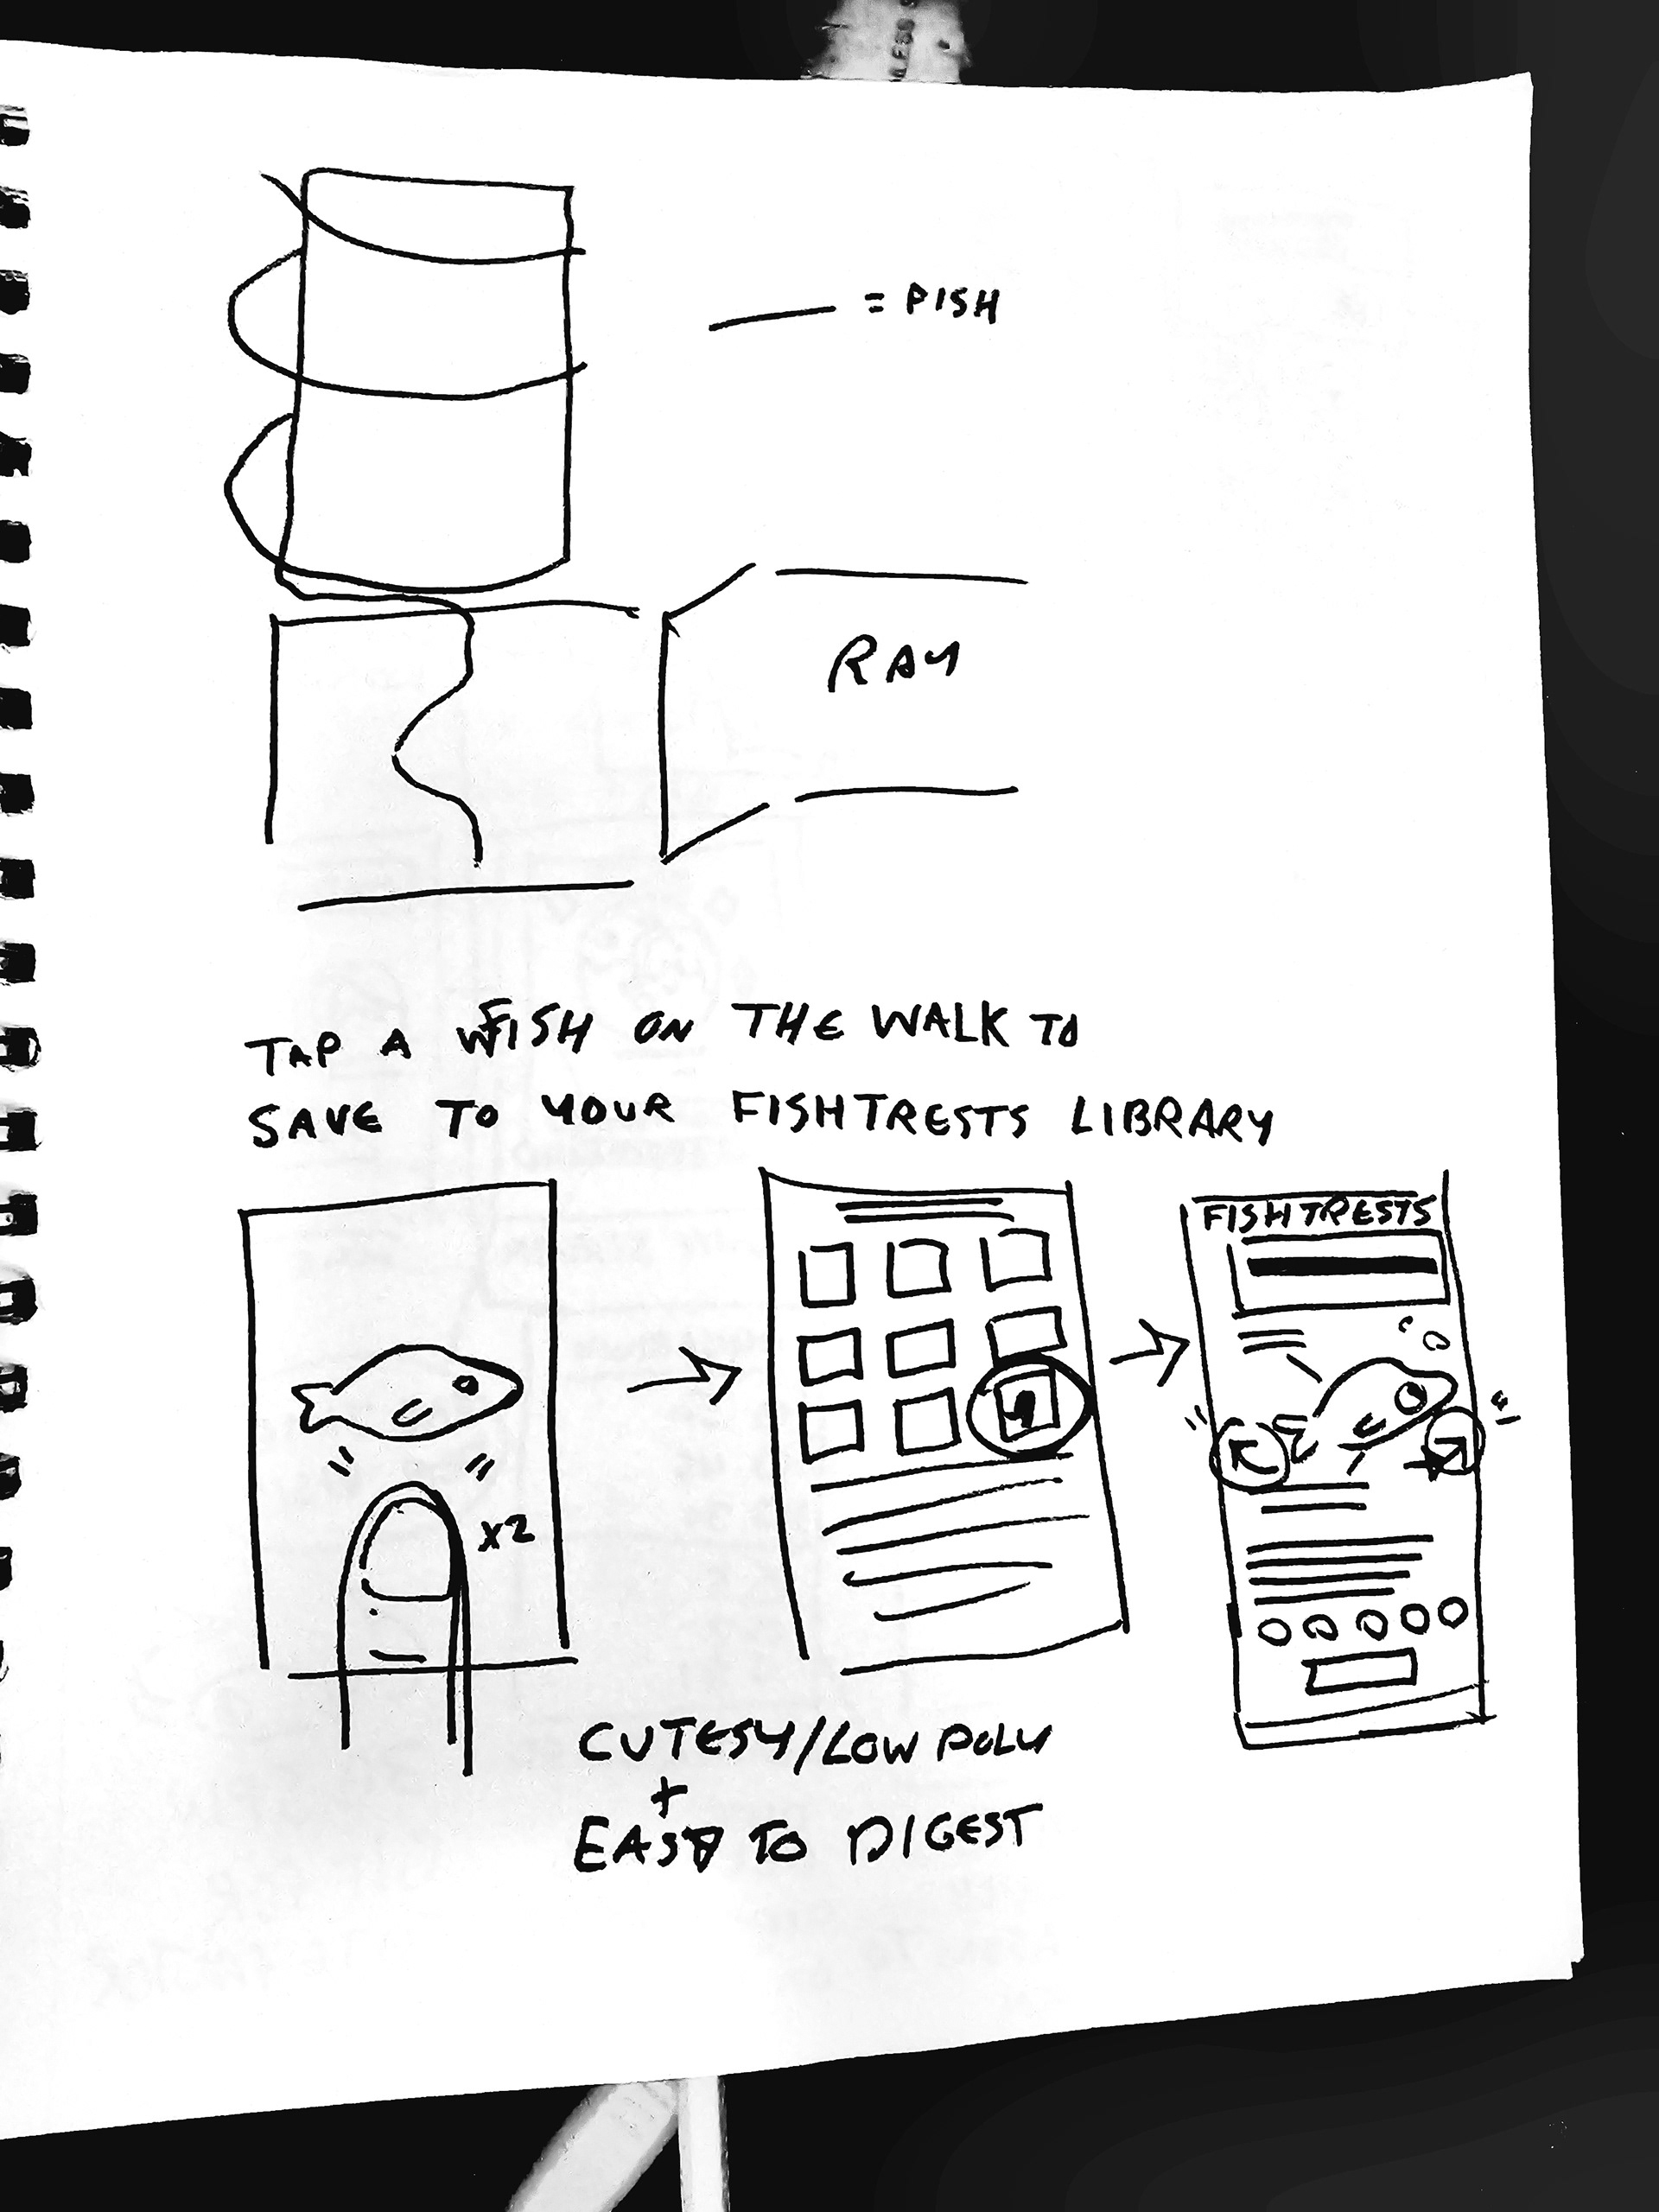 = PISH
RAY
TAP A FISH ON THE WALK TO
SAVE TO YOUR FISHTRESTS LIBRARY
FISHTRESTS
X2
CUTESY/LOW POLY
+
EASY TO DIGEST